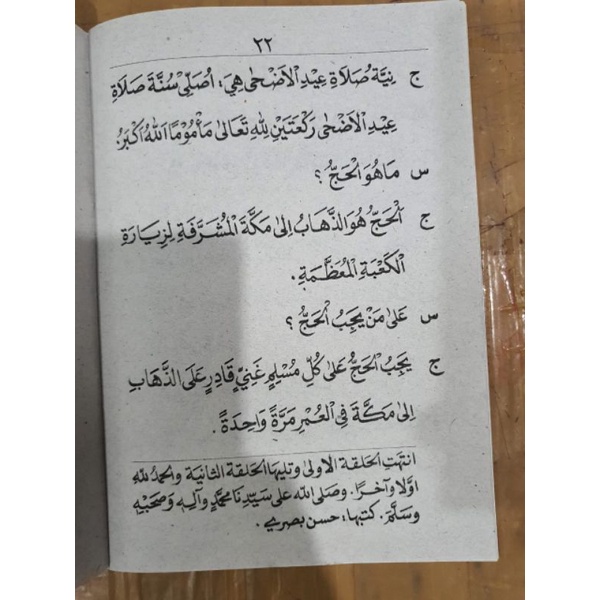 ٢٢
ج نِيَّة صُلَاةِ عِيْدِ الْاَضْحٰى هِيَ: اُصَلِّىْ سُنَّةَ صَلَاةِ
عِيْدِ الْاَضْحٰى رَكْعَتَيْنِ لِلّٰهِ تَعَالٰى مَأْمُوْمًا اَللّٰهُ اَكْبَرُ.
س مَا هُوَ الْحَجُّ ؟
ج اَلْحَجُّ هُوَ الذَّهَابُ اِلٰى مَكَّةَ الْمُشَرَّفَةِ لِزِيَارَةِ
الْكَعْبَةِ الْمُعَظَّمَةِ.
س عَلٰى مَنْ يَجِبُ الْحَجُّ ؟
ج يَجِبُ الْحَجُّ عَلٰى كُلِّ مُسْلِمٍ غَنِيٍّ قَادِرٍ عَلَى الذَّهَابِ
اِلٰى مَكَّةَ فِى الْعُمْرِ مَرَّةً وَاحِدَةً.
انتهَتِ الحَلقة الاولىٰ وتليهَا الحَلقة الثانية والحمدُ للّٰهِ
اوّلا وآخرًا. وصَلى اللّه على سَيّدِنا محمَّدٍ وآلِهِ وَصَحبِهِ
وسَلَّمَ. كتبهَا: حسن بصري.